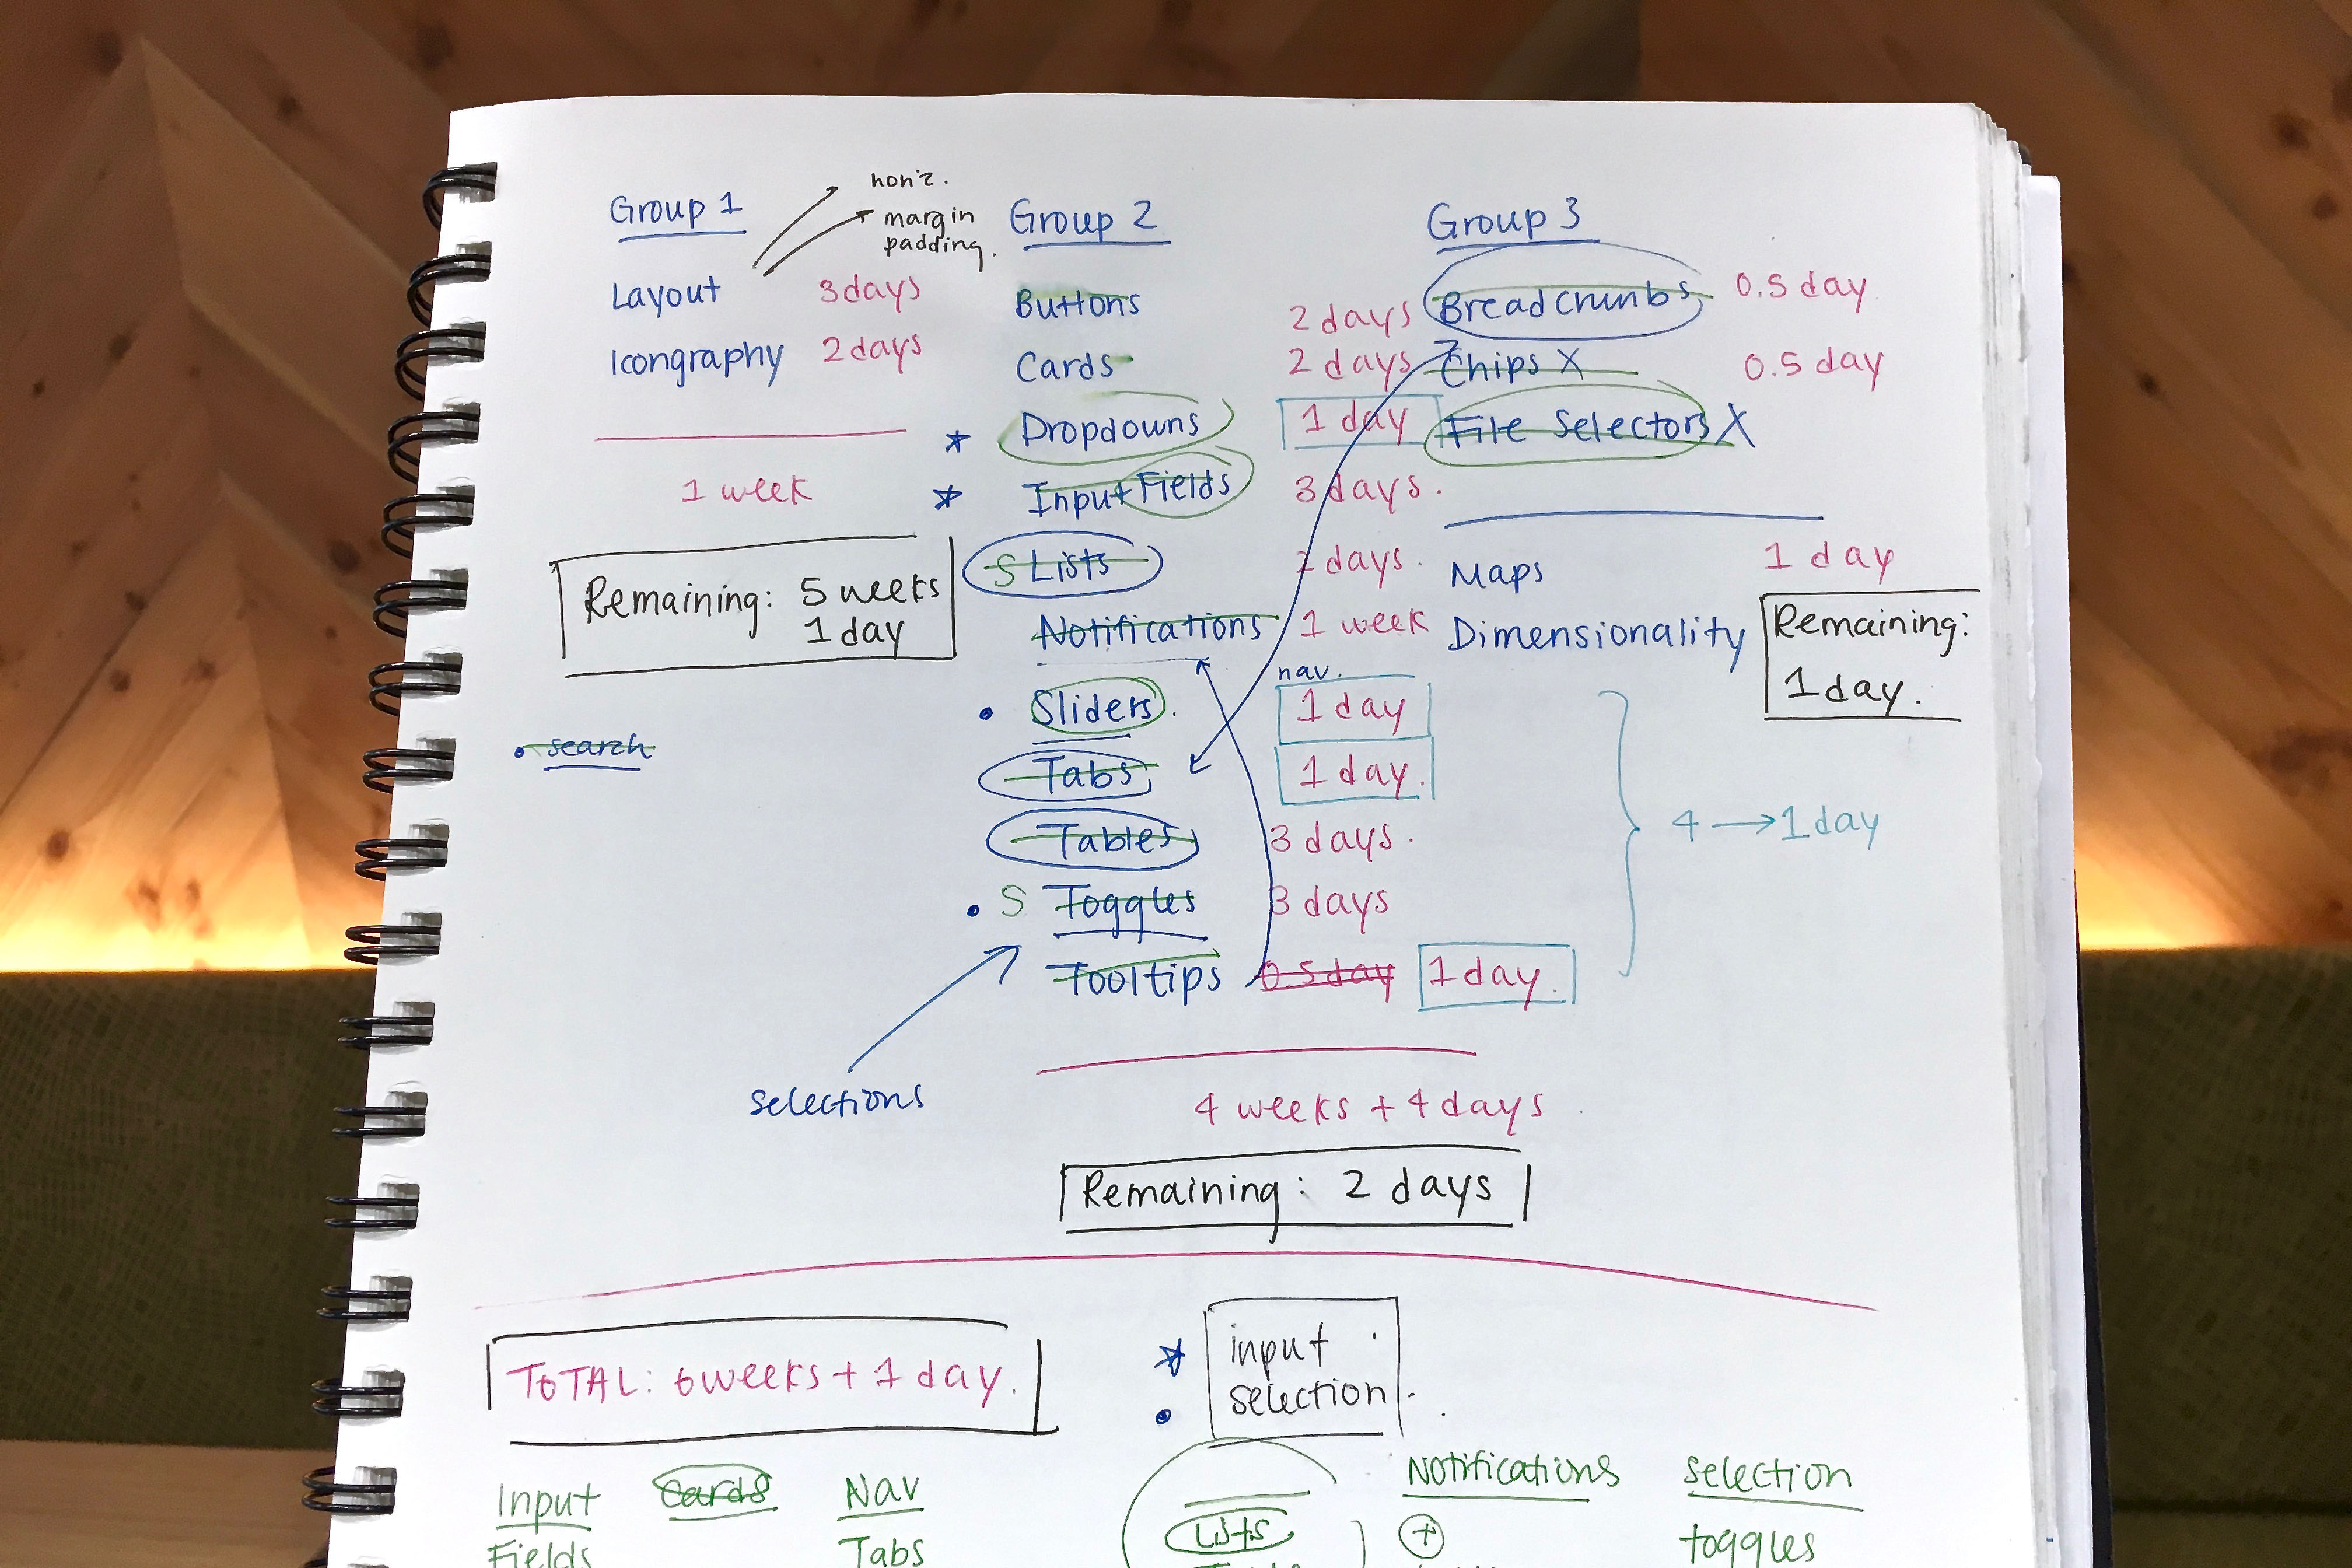 Group 1
Layout 3 days
Icongraphy 2 days
1 week
Remaining: 5 weeks
1 day
search
margin
padding.
Group 2
Buttons 2 days
Cards 2 days
Dropdowns 1 day
Input Fields 3 days.
S Lists days.
Notifications 1 week
nav.
Sliders. 1 day
Tabs 1 day.
Tables 3 days.
S Toggles 3 days
Tooltips 0.5 day 1 day.
selections
4 weeks + 4 days
Remaining: 2 days
Group 3
Breadcrumbs 0.5 day
Chips X 0.5 day
File Selectors X
Maps 1 day
Dimensionality
Remaining:
1 day.
4 → 1 day
TOTAL: 6 weeks + 1 day.
input
selection.
Input
Fields
Cards
Nav
Tabs
Lists
Notifications
+
Selection
toggles